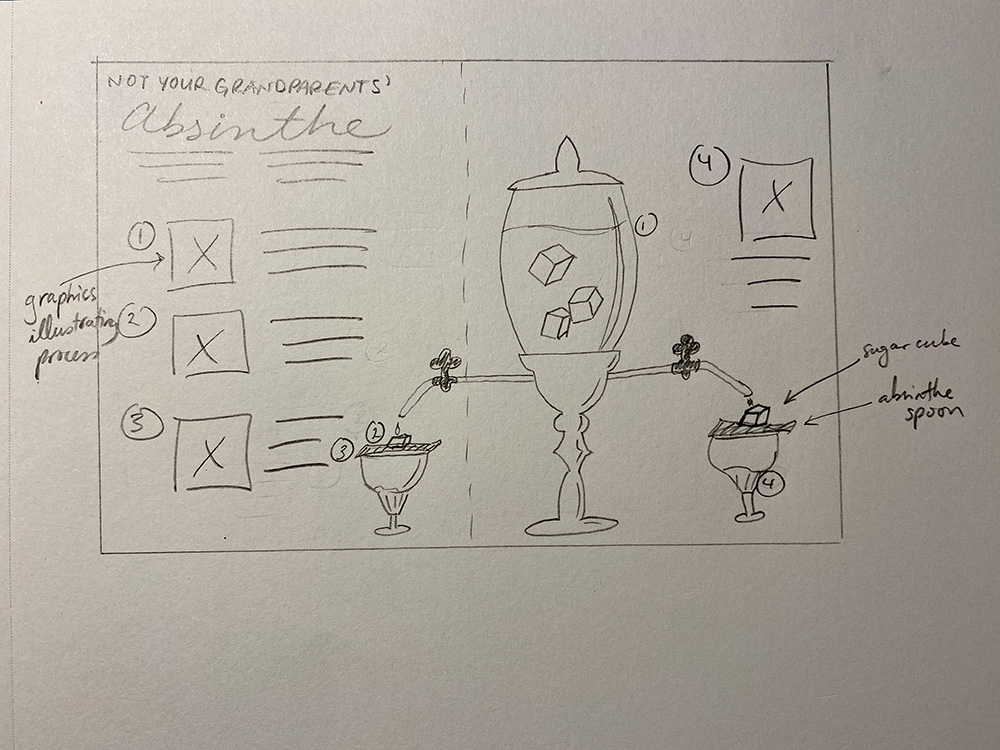 NOT YOUR GRANDPARENTS'
Absinthe
1
graphics
illustrating
process
2
3
2
3
1
4
4
sugar cube
absinthe
spoon